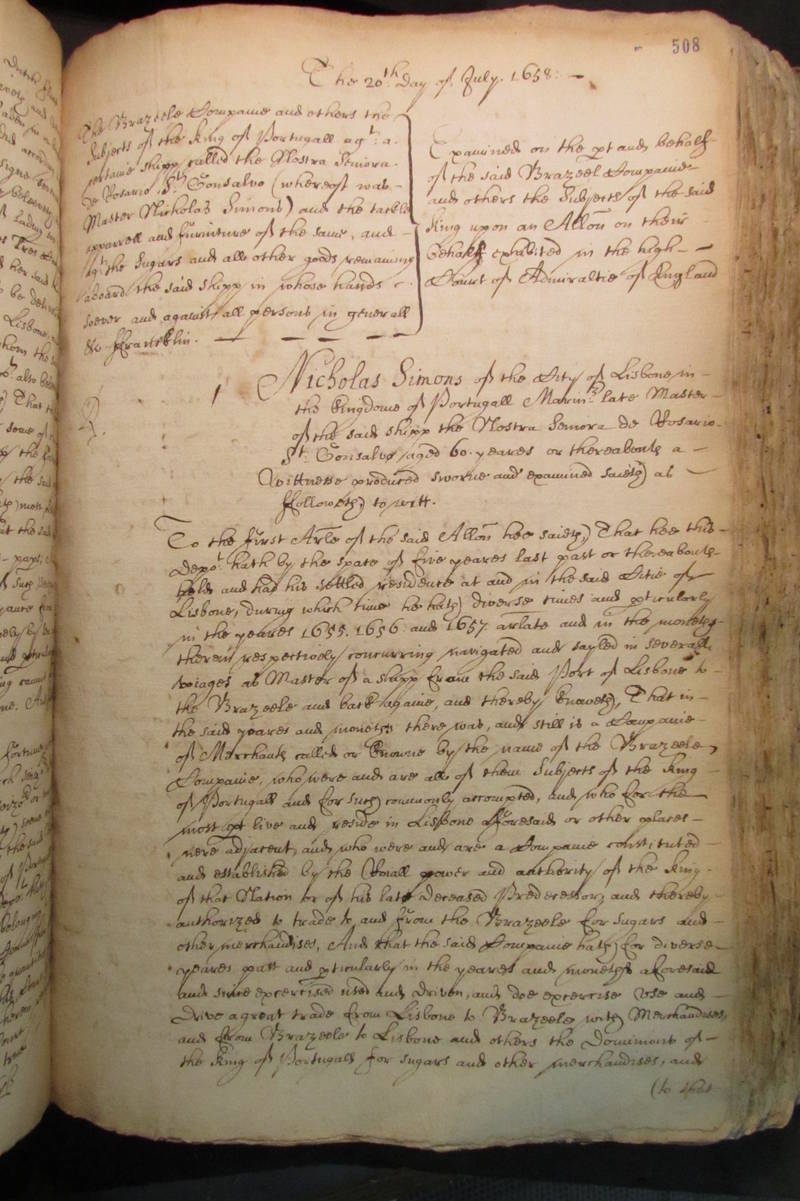 508
The 20th. day of July. 1658: -
The Brazeele Companie and others the
Subjects of the King of Portugall agt. a
certaine shipp called the Nostra Semora
de Rosario St. Gonsalvo (whereof was
Master Nicholas Simons) and the tackle
apparrell and furniture of the same, and
agt. the Sugars and all other goods remaining
aboard the said shipp in whose hands
soever and against all persons in generall
&c. ffrancklin.
Examined on the pt and behalf
of the said Brazeel Companie
and others the Subjects of the said
King upon an Allon on their
behalf exhibited in the high
Court of Admiraltie of England
1
Nicholas Simons of the City of Lisbone in
the Kingdome of Portugall Marinr. late Master
of the said shipp the Nostra Semora de Rosario
St. Gonsalvo aged 60. yeares or thereabouts a
Wittnesse produced sworne and examined saieth as
ffolloweth, to witt.
To the first Arle of the said Allon hee saieth, That hee this
depot. hath by the space of five yeares last past or thereabouts
held and had his settled residence at and in the said Citie of
Lisbone, during which time he hath diverse times and pticularly
in the yeares 1655. 1656 and 1657 arlate and in the moneths
therein respectively concurring navigated and sayled in severall
voiages as Master of a shipp from the said Port of Lisbone to
the Brazeele and back againe, and thereby knoweth, That in
the said yeares and moneths there was, and still is a Companie
of Marchants called or knowne by the name of the Brazeele
Companie, who were and are all of them Subjects of the King
of Portugall and for such commonly accompted, and who for the
most pt live and reside in Lisbone aforesaid or other places
nere adjacent, and who were and are a Companie constituted
and established by the Roiall power and authority of the King
of that Nation or of his late deceased Predecessor, and thereby
authorized to trade to and from the Brazeele for Sugars and
other merchandises, And that the said Companie hath for diverse
yeares past and pticularly in the yeares and moneths aforesaid
and since excercised used and driven, and doe excercise use and
drive a great trade from Lisbone to Brazeele with Merchandises,
and from Brazeele to Lisbone and others the Dominions of
the King of Portugall for sugars and other merchandises, and